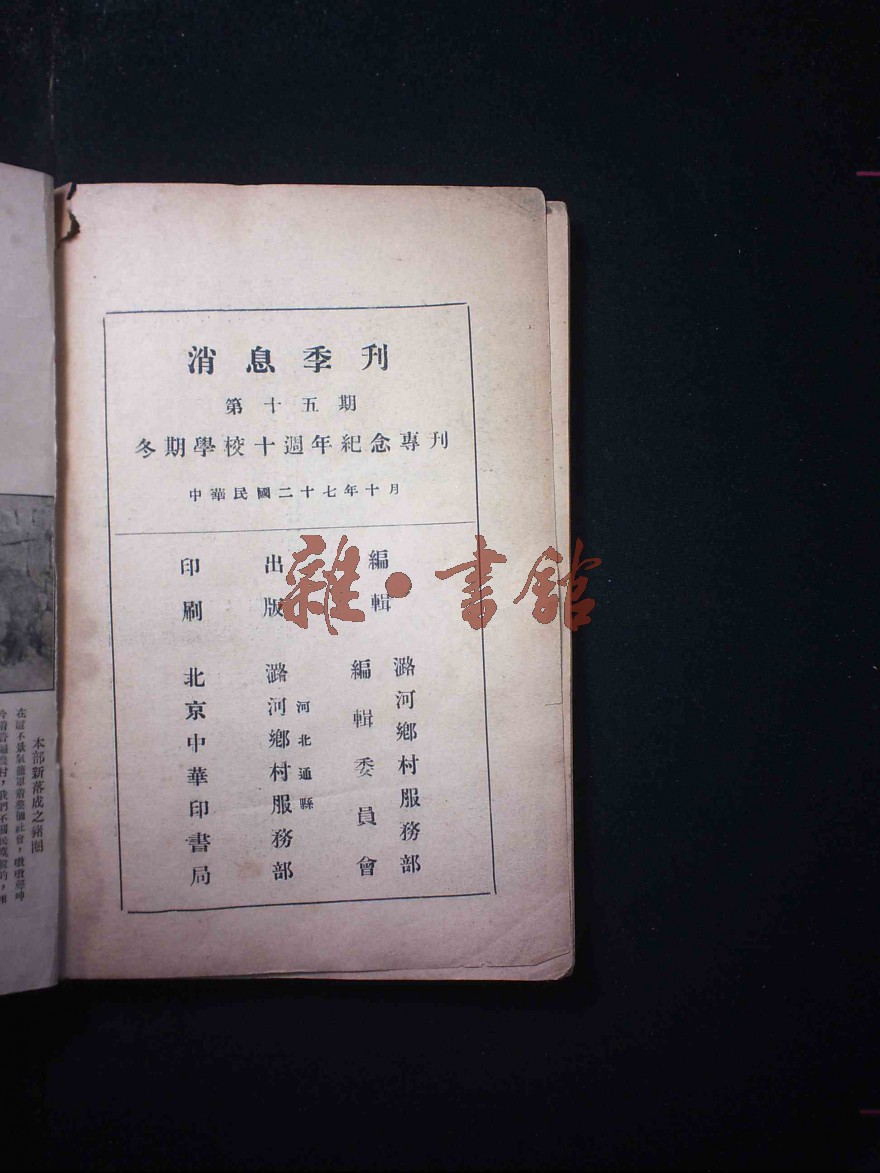 消息季刊
第十五期
冬期學校十週年紀念專刊
中華民國二十七年十月
編輯
潞河鄉村服務部
編輯委員會
出版
河北通縣
潞河鄉村服務部
印刷
北京中華印書局
雜·書館
本部新落成之豬圈